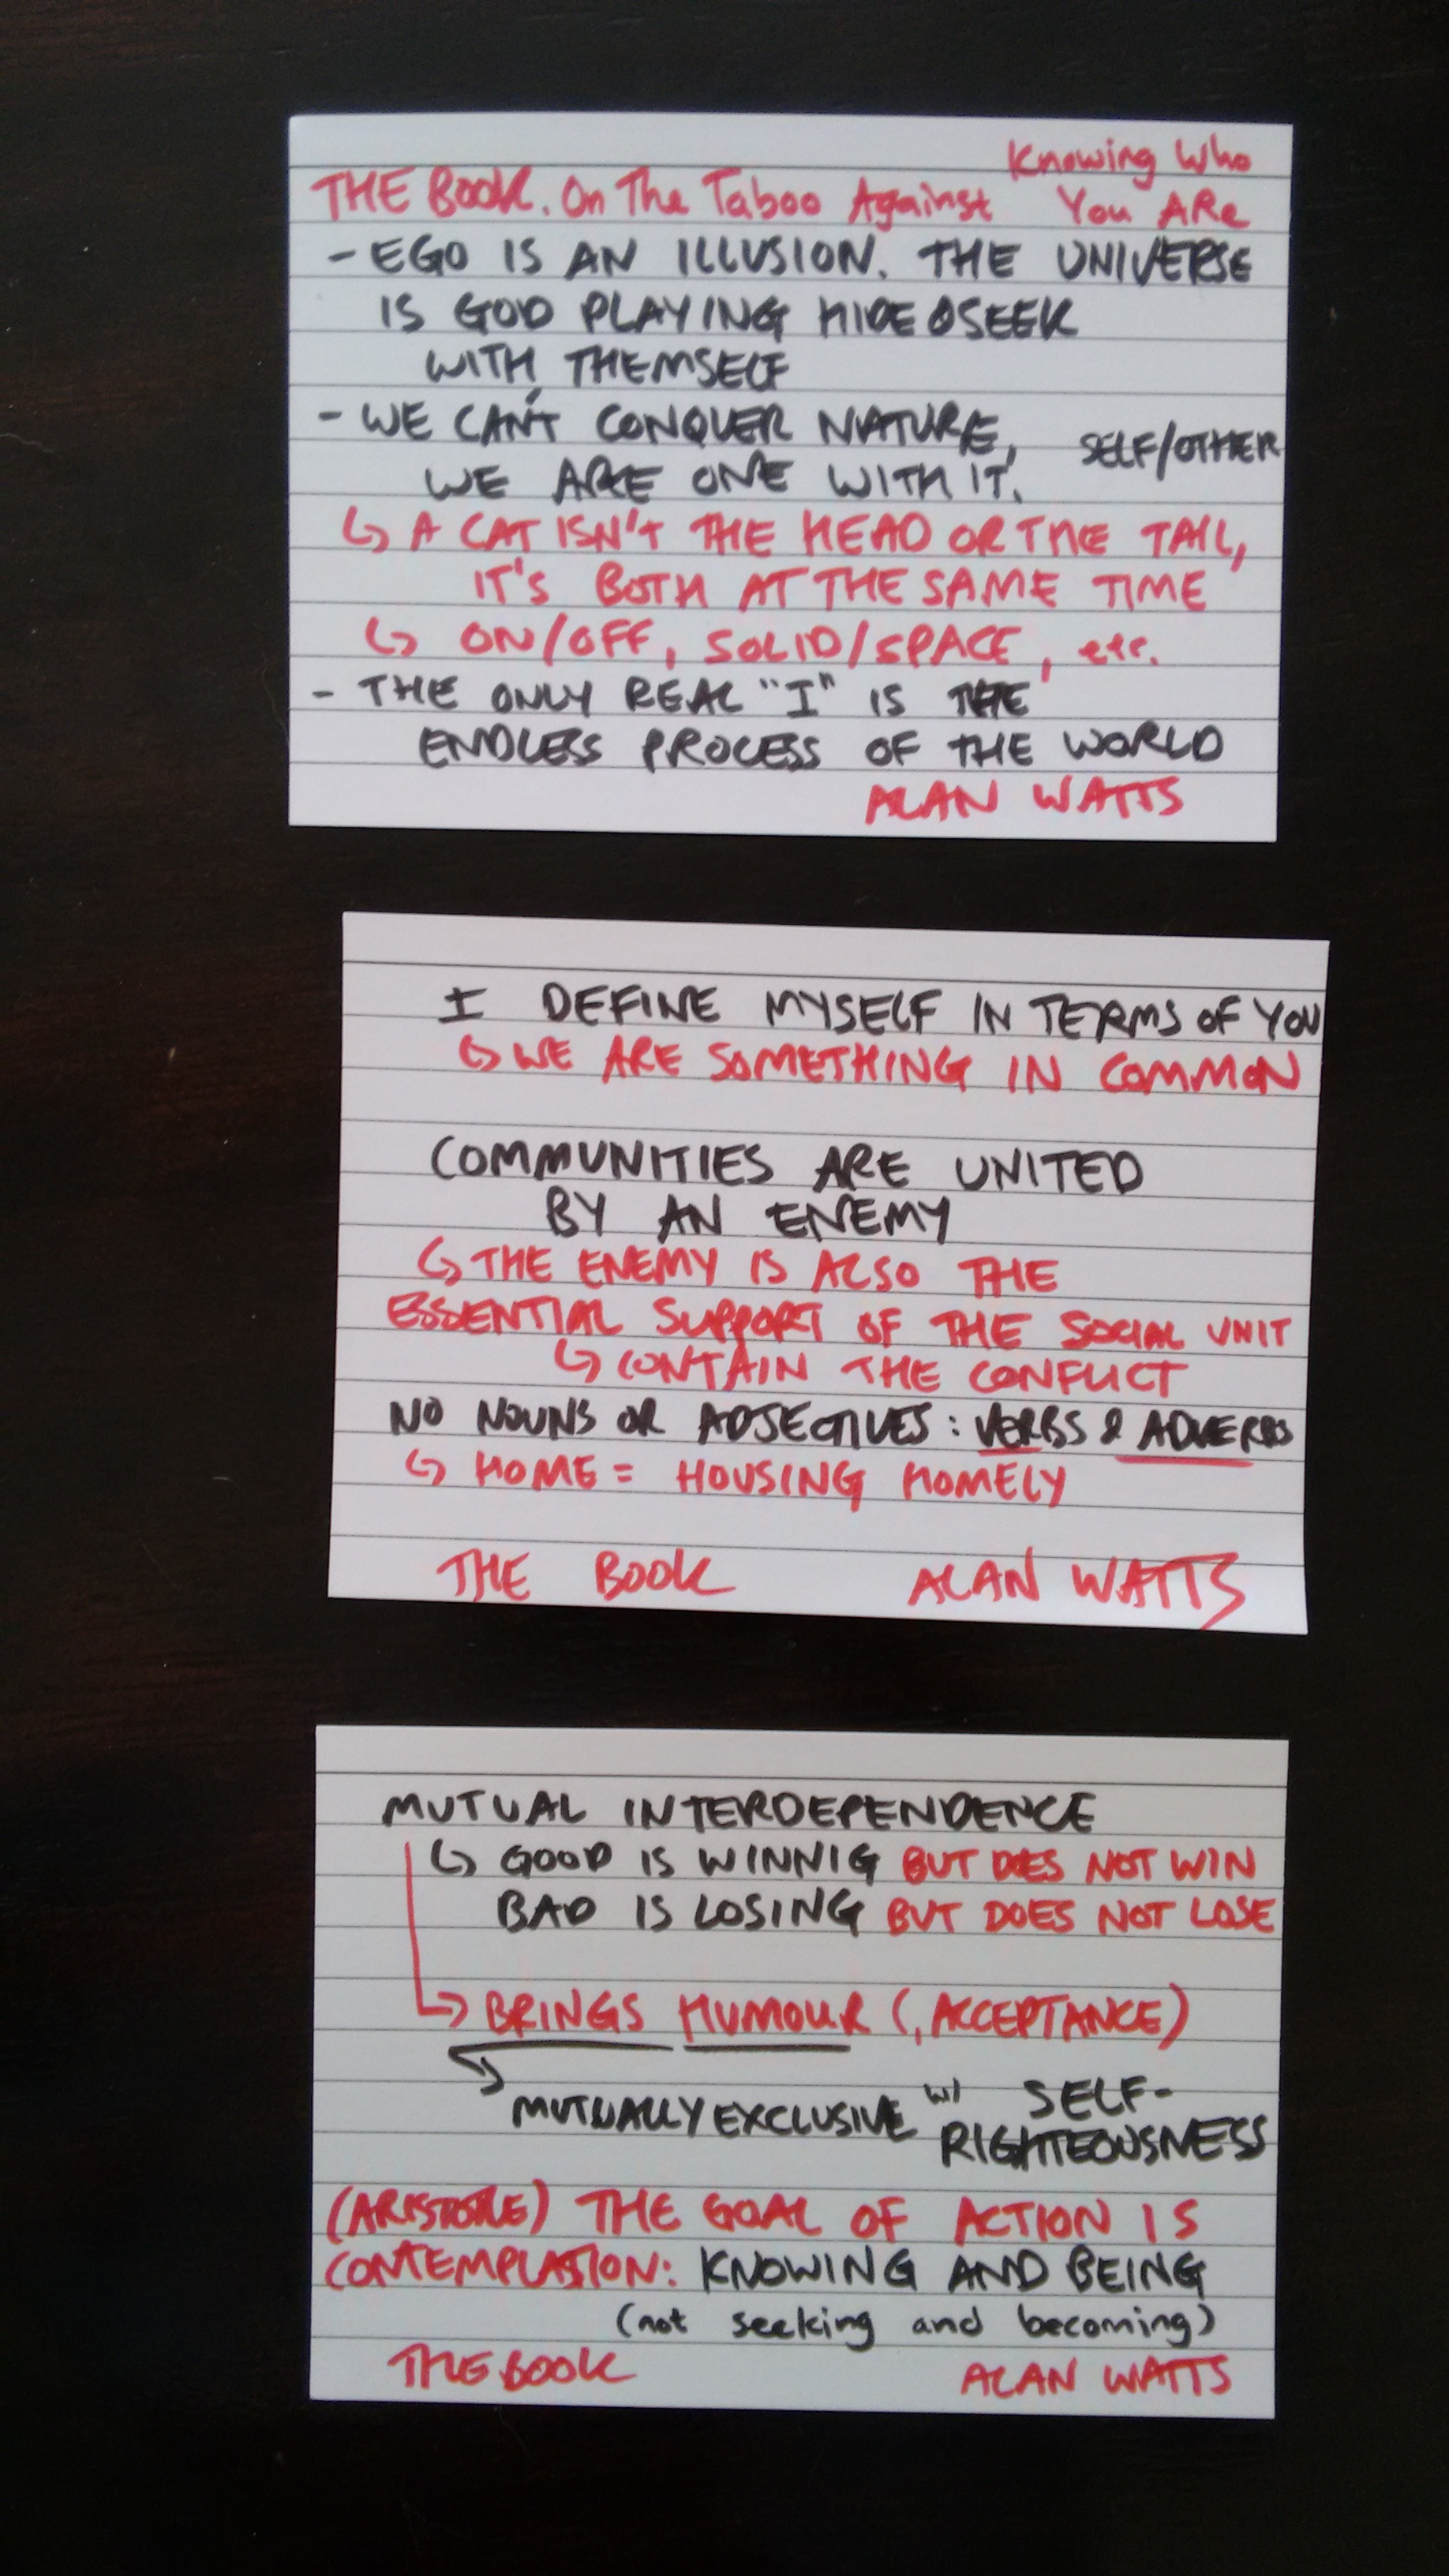 Knowing Who
THE BOOK. On The Taboo Against You ARe
- EGO IS AN ILLUSION. THE UNIVERSE
IS GOD PLAYING HIDE&SEEK
WITH THEMSELF
- WE CAN'T CONQUER NATURE,
SELF/OTHER
WE ARE ONE WITH IT.
↳ A CAT ISN'T THE HEAD OR THE TAIL,
IT'S BOTH AT THE SAME TIME
↳ ON/OFF, SOLID/SPACE, etc.
- THE ONLY REAL "I" IS THE
ENDLESS PROCESS OF THE WORLD
ALAN WATTS
I DEFINE MYSELF IN TERMS OF YOU
↳ WE ARE SOMETHING IN COMMON
COMMUNITIES ARE UNITED
BY AN ENEMY
↳ THE ENEMY IS ALSO THE
ESSENTIAL SUPPORT OF THE SOCIAL UNIT
↳ CONTAIN THE CONFLICT
NO NOUNS OR ADJECTIVES: VERBS & ADVERBS
↳ HOME = HOUSING HOMELY
THE BOOK ALAN WATTS
MUTUAL INTERDEPENDENCE
↳ GOOD IS WINNIG BUT DOES NOT WIN
BAD IS LOSING BUT DOES NOT LOSE
↳ BRINGS HUMOUR (, ACCEPTANCE)
↳ MUTUALLY EXCLUSIVE w/ SELF-
RIGHTEOUSNESS
(ARISTOTLE) THE GOAL OF ACTION IS
CONTEMPLATION: KNOWING AND BEING
(not seeking and becoming)
THE BOOK ALAN WATTS